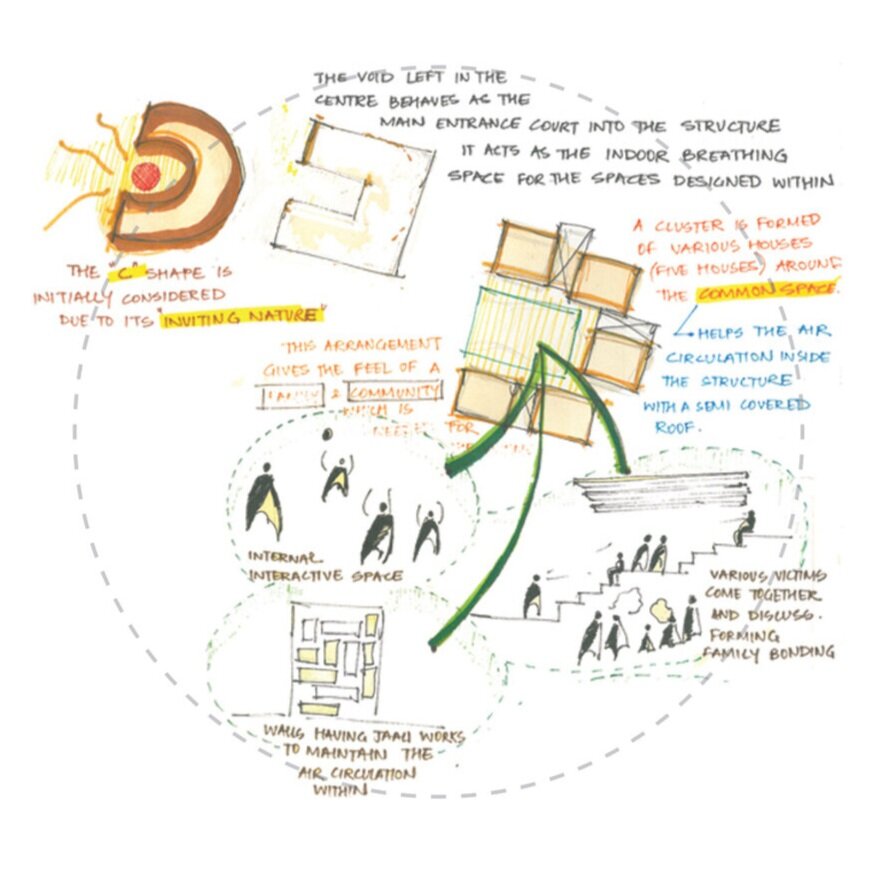 THE VOID LEFT IN THE
CENTRE BEHAVES AS THE
MAIN ENTRANCE COURT INTO THE STRUCTURE
IT ACTS AS THE INDOOR BREATHING
SPACE FOR THE SPACES DESIGNED WITHIN
THE "C" SHAPE IS
INITIALLY CONSIDERED
DUE TO ITS "INVITING NATURE"
A CLUSTER IS FORMED
OF VARIOUS HOUSES
(FIVE HOUSES) AROUND
THE COMMON SPACE.
HELPS THE AIR
CIRCULATION INSIDE
THE STRUCTURE
WITH A SEMI COVERED
ROOF.
THIS ARRANGEMENT
GIVES THE FEEL OF A
FAMILY & COMMUNITY
WHICH IS
NEEDED FOR
INTERNAL
INTERACTIVE SPACE
VARIOUS VICTIMS
COME TOGETHER
AND DISCUSS.
FORMING
FAMILY BONDING
WALLS HAVING JAALI WORKS
TO MAINTAIN THE
AIR CIRCULATION
WITHIN